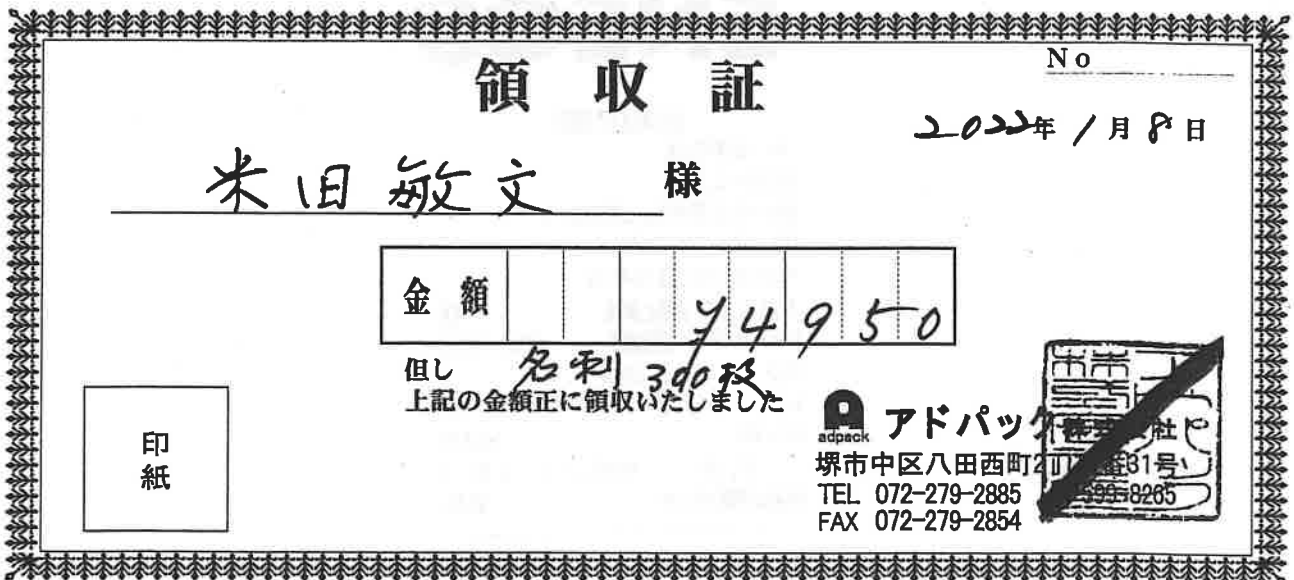 No
領収証
2022年1月8日
米田敏文 様
金額 ¥4950
但し 名刺 300枚
上記の金額正に領収いたしました
印紙
adpack アドパック株式会社
堺市中区八田西町2丁
TEL 072-279-2885 599-8265
FAX 072-279-2854